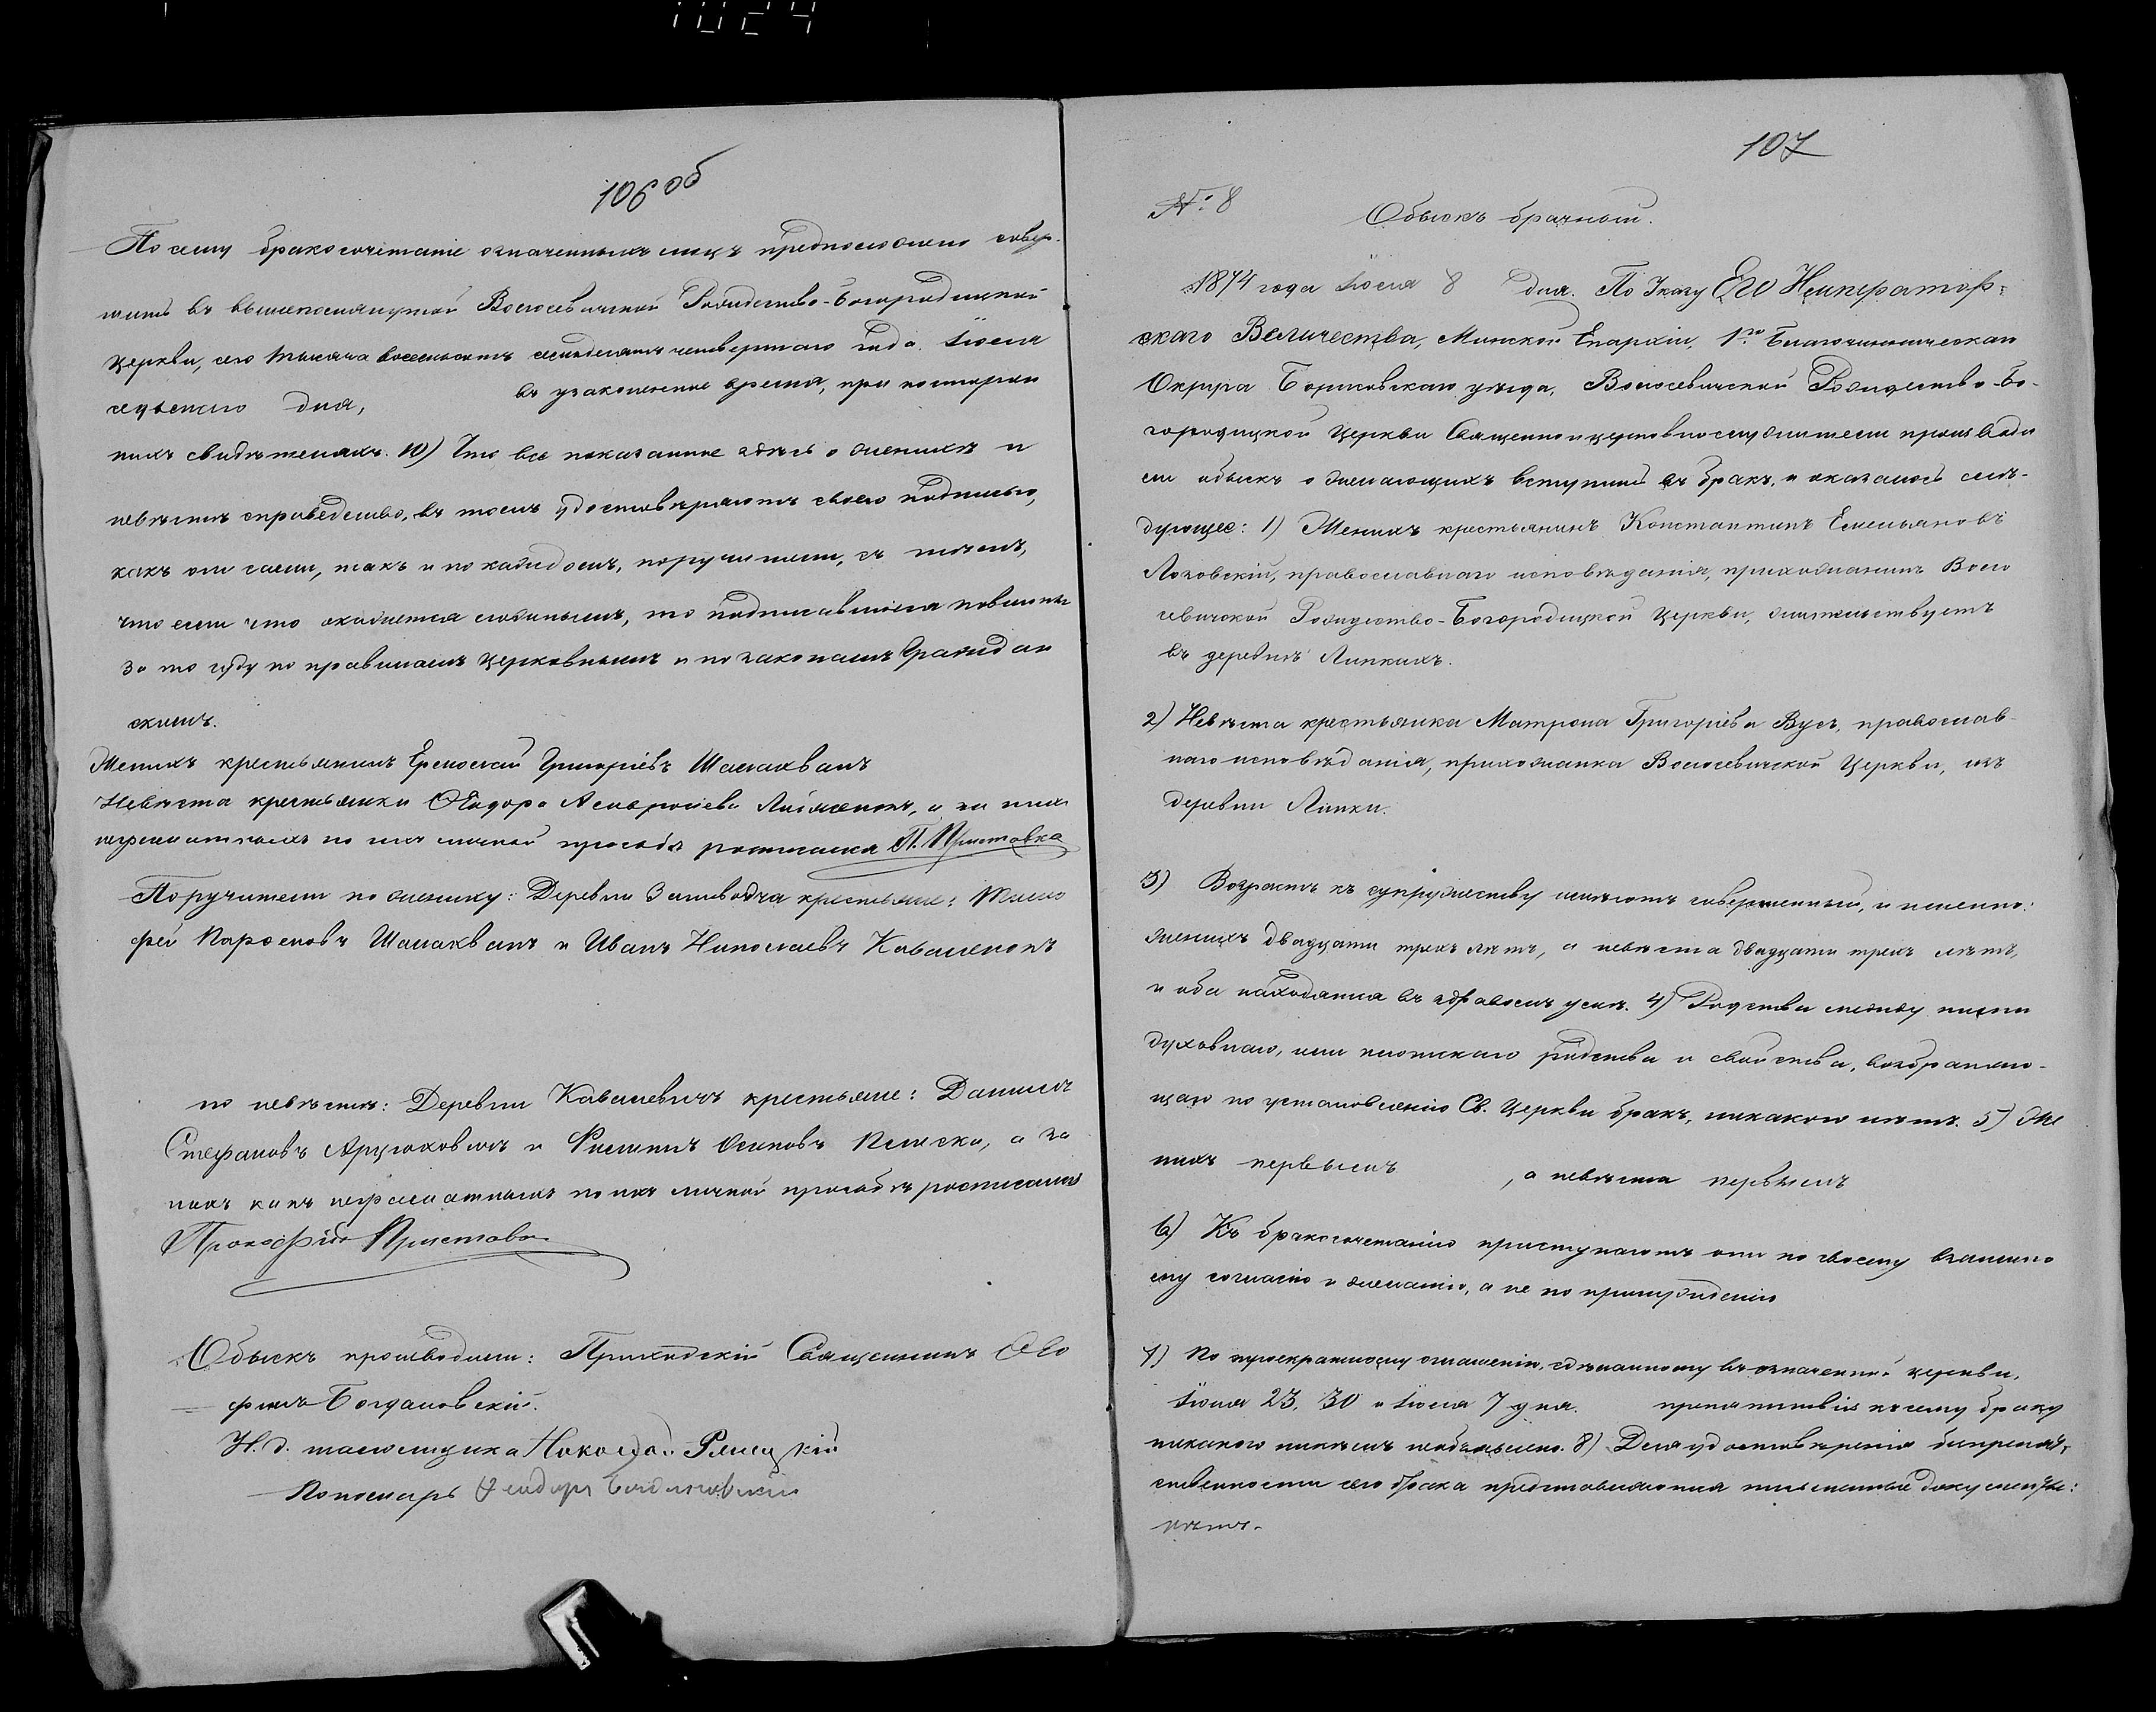 1024
106 об
По сему бракосочетаніе означенныхъ лицъ предположено совер-
шить въ вышепомянутой Волосевичской Рождество-Богородицкой
церкви, сего тысяча восемьсотъ семьдесятъ четвертаго года Іюля
седьмаго дня, въ узаконенное время, при посторон
нихъ свидѣтеляхъ. 10) Что все показанное здѣсь о женихѣ и
невѣстѣ справедливо, въ томъ удостовѣряютъ своею подписью,
какъ они сами, такъ и по каждомъ, поручители, съ тѣмъ,
что если что окажется ложнымъ, то подписавшіеся повинны
за то суду по правиламъ церковнымъ и по законамъ Граждан
скимъ.
Женихъ крестьянинъ Ермолай Григоріевъ Шалахванъ
Невѣста крестьянка Ѳеодора а за нихъ
неграмотныхъ по ихъ личной просьбѣ росписался П. Приставка
Поручители по женику: Деревни крестьяне: Тимо
фей Парѳеновъ Шалахванъ и Иванъ Николаевъ Коваленокъ
по невѣстѣ: Деревни Ковалевичъ крестьяне: Даніилъ
Стефановъ и Филиппъ Осиповъ а за
нихъ какъ неграмотныхъ по ихъ личной просьбѣ росписался
Прокофій Приставка
Обыскъ производили: Приходскій Священникъ Ѳео
филъ Богдановскій.
И. д. псаломщика
Пономарь Ѳеодоръ
107
№ 8
Обыскъ брачный.
1874 года Іюля 8 дня. По Указу Его Император-
скаго Величества, Минской Епархіи, 1го Благочинническаго
Округа Борисовскаго уѣзда, Волосевичской Рождество-Бо-
городицкой Церкви Священно и церковнослужители производи
ли обыскъ о желающихъ вступить въ бракъ, и оказалось слѣ-
дующее: 1) Женихъ крестьянинъ Константинъ Емельяновъ
Лозовскій, православнаго исповѣданія, прихожанинъ Воло
севичской Рождество-Богородицкой Церкви, жительствуетъ
въ деревнѣ Липкахъ.
2) Невѣста крестьянка Матрона Григоріева Вусъ, православ-
наго исповѣданія, прихожанка Волосевичской Церкви, изъ
деревни Липки.
3) Возрастъ къ супружеству имѣютъ совершенный, и именно:
женихъ двадцати трехъ лѣтъ, а невѣста двадцати трехъ лѣтъ,
и оба находятся въ здравомъ умѣ. 4) Родства между ними
духовнаго, или плотскаго родства и свойства, возбраняю-
щаго по установленію Св. Церкви бракъ, никакого нѣтъ. 5) Же
нихъ первымъ , а невѣста первымъ
6) Къ бракосочетанію приступаютъ они по своему взаимно
му согласію и желанію, а не по принужденію
7) По троекратному оглашенію, сдѣланному въ означенной церкви,
Іюня 23, 30 и Іюля 7 дня. препятствія къ сему браку
никакого никѣмъ необъявлено. 8) Для удостовѣренія безпрепят-
ственности сего брака представляются письменные документы:
нѣтъ.